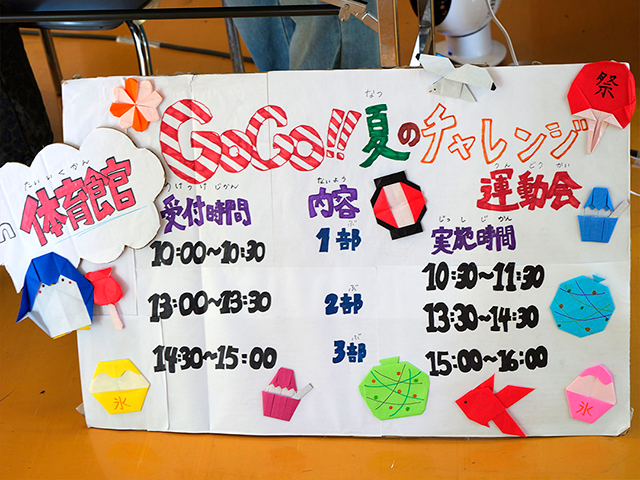 GoGo!! 夏のチャレンジ
なつ
祭
n
たいいくかん
体育館官
運動会
うんどうかい
うけつけじかん
受付時間
ないよう
内容
じっしじかん
実施時間
10:00~10:30 1部 10:30~11:30
ぶ
13:00~13:30 2部 13:30~14:30
ぶ
14:30~15:00 3部 15:00~16:00
ぶ
氷
氷